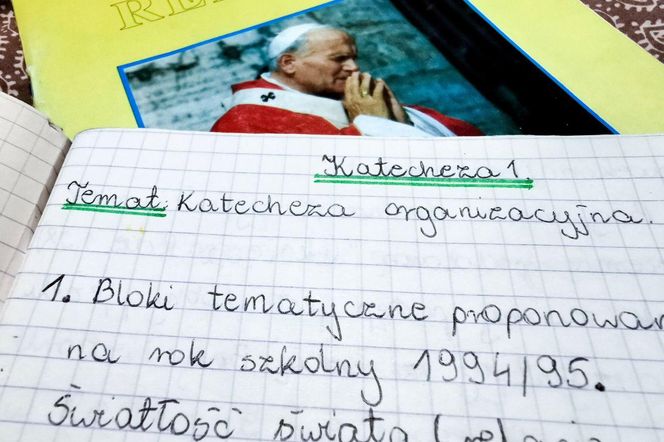 RE
Katecheza 1.
Temat: Katecheza organizacyjna.
1. Bloki tematyczne proponowan
na rok szkolny 1994/95.
Światłość świata